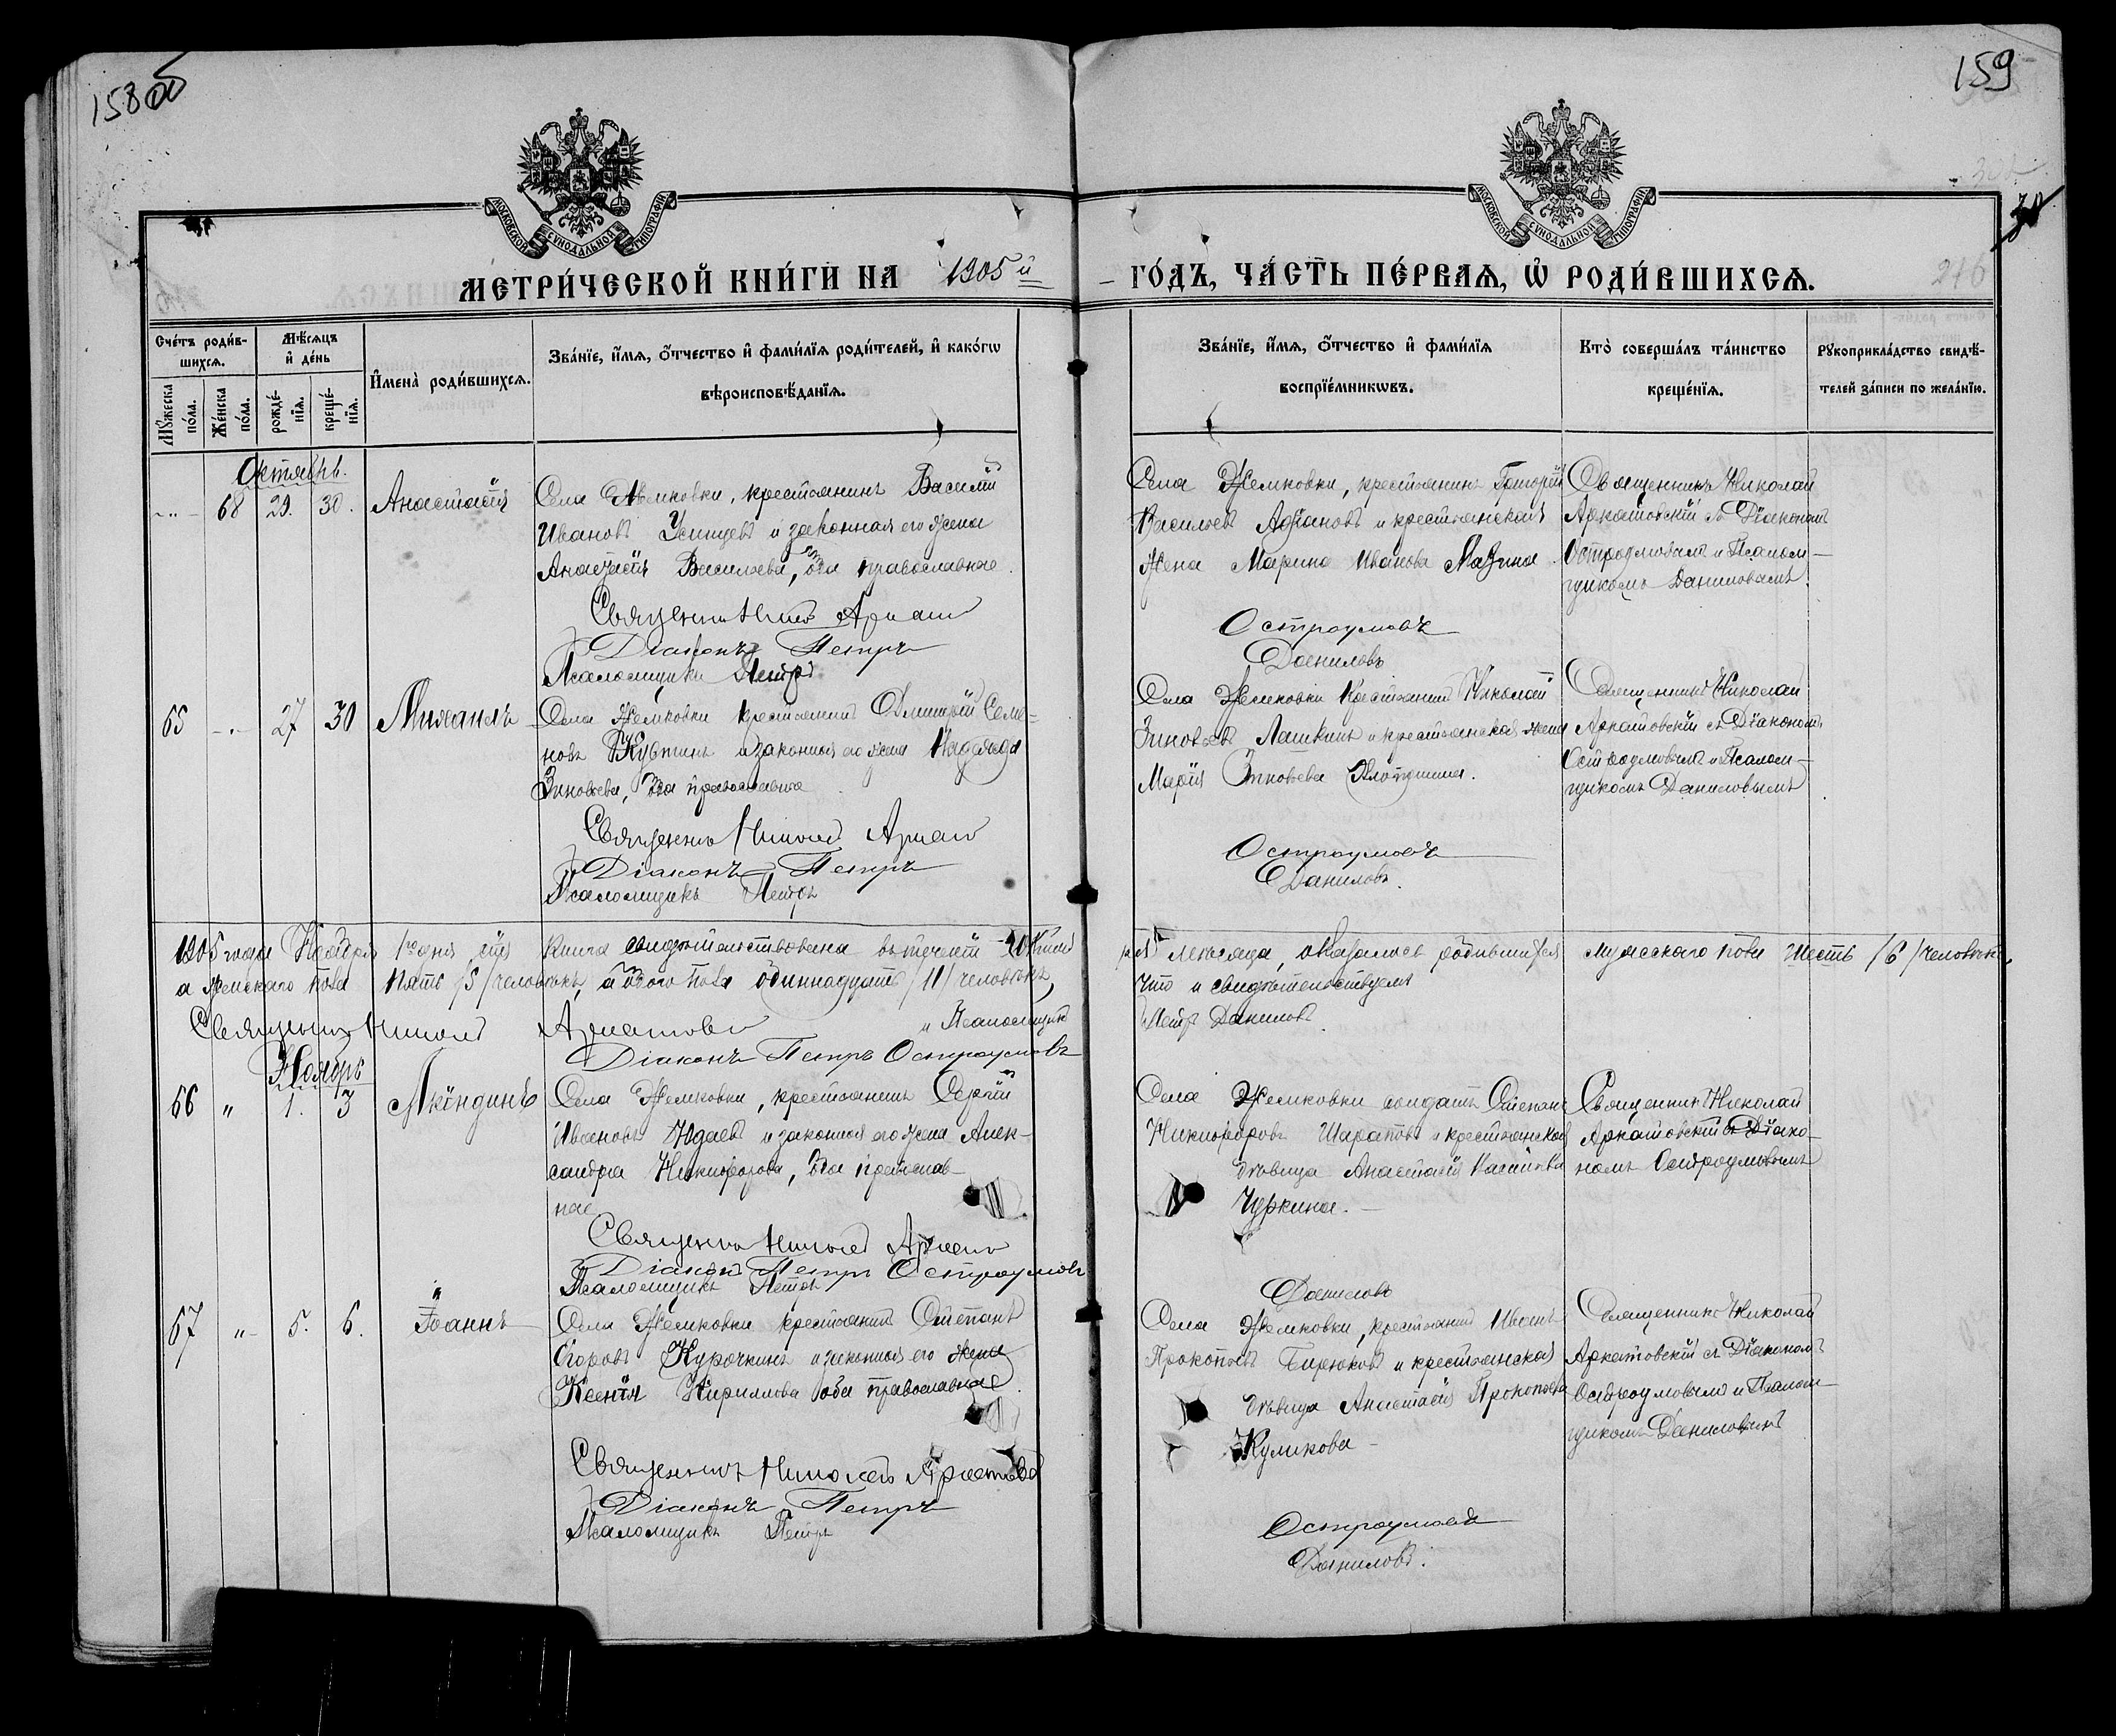 158 об
159
МОСКОВСКОЙ СѴНОДАЛЬНОЙ ТИПОГРАФІИ
МОСКОВСКОЙ СѴНОДАЛЬНОЙ ТИПОГРАФІИ
30
216
МЕТРИ́ЧЕСКОЙ КНИ́ГИ НА 1905 й
ГО́ДЪ, ЧА́СТЬ ПЕ́РВАЯ, Ѡ҆ РОДИ́ВШИХСЯ.
Сче́тъ роди́в-
шихся.
Мꙋ́жеска по́ла.
Же́нска по́ла.
Мѣ́сяцъ и҆ де́нь
рожде́-нїя.
креще́-нїя.
И҆мена̀ роди́вшихся.
Зва́нїе, и҆́мя, ѻ҆́тчество и҆ фами́лїя роди́телей, и҆ како́гѡ
вѣроисповѣ́данїя.
Зва́нїе, и҆́мя, ѻ҆́тчество и҆ фами́лїя
воспрїе́мникѡвъ.
Кто̀ соверша́лъ та́инство
креще́нїя.
Рꙋкоприкла́дство свидѣ́-
телей за́писи по жела́нїю.
Октябрь.
68 29. 30. Анастасія
Села Жемковки, крестьянинъ Василій
Ивановъ и законная его жена
Анастасія Васильева, оба православные.
Священникъ Никол Аркат
Діаконъ Петръ
Псаломщикъ Петръ
Села Жемковки, крестьянинъ Григорій
Васильевъ Адіановъ и крестьянская
жена Марина Иванова Мазина.
Остроумовъ
Даниловъ
Священникъ Николай
Аркатовскій съ Діакономъ
Остроумовымъ и Псалом-
щикомъ Даниловымъ.
65 27 30 Михаилъ
Села Жемковки крестьянинъ Димитрій Семе-
новъ и законная его жена Надежда
Зиновьева, оба православные
Священникъ Николай Аркат
Діаконъ Петръ
Псаломщикъ Петръ
Села Жемковки крестьянинъ Николай
Зиновьевъ Лашкинъ и крестьянская жена
Марія Зиновьева
Остроумовъ
Даниловъ.
Священникъ Николай
Аркатовскій съ Діакономъ
Остроумовымъ и Псалом-
щикомъ Даниловымъ
1905 года Ноября 1го дня сія книга свидѣтельствована въ теченіи Октяб
ря мѣсяца, оказалось родившихся мужескаго пола шесть /6/ человѣкъ,
а женскаго пола пять /5/ человѣкъ, а обоего пола одиннадцать /11/ человѣкъ,
что и свидѣтельствуемъ
Священникъ Николай Аркатовс
и Псаломщикъ
Петръ Даниловъ
Діаконъ Петръ Остроумовъ
Ноябрь
66 " 1. 3 Акиндинъ
Села Жемковки, крестьянинъ Сергій
Ивановъ Юдаевъ и законная его жена Алек-
сандра Никифорова, оба православ-
ные
Священникъ Николай Аркат
Діаконъ Петръ Остроумовъ
Псаломщикъ Петръ
Села Жемковки солдатъ Степанъ
Никифоровъ Шараповъ и крестьянская
дѣвица Анастасія
Чуркина.
Даниловъ
Священникъ Николай
Аркатовскій съ Діако-
номъ Остроумовымъ
67 " 5. 6. Іоаннъ
Села Жемковки крестьянинъ Степанъ
Егоровъ Курочкинъ и законная его жена
Ксенія Кириллова оба православные
Священникъ Николай Аркатов
Діаконъ Петръ
Псаломщикъ Петръ
Села Жемковки, крестьянинъ Иванъ
Прокопьевъ Бирюковъ и крестьянская
дѣвица Анастасія Прокопьева
Куликова
Остроумовъ
Даниловъ.
Священникъ Николай
Аркатовскій съ Діакономъ
Остроумовымъ и Псалом-
щикомъ Даниловымъ